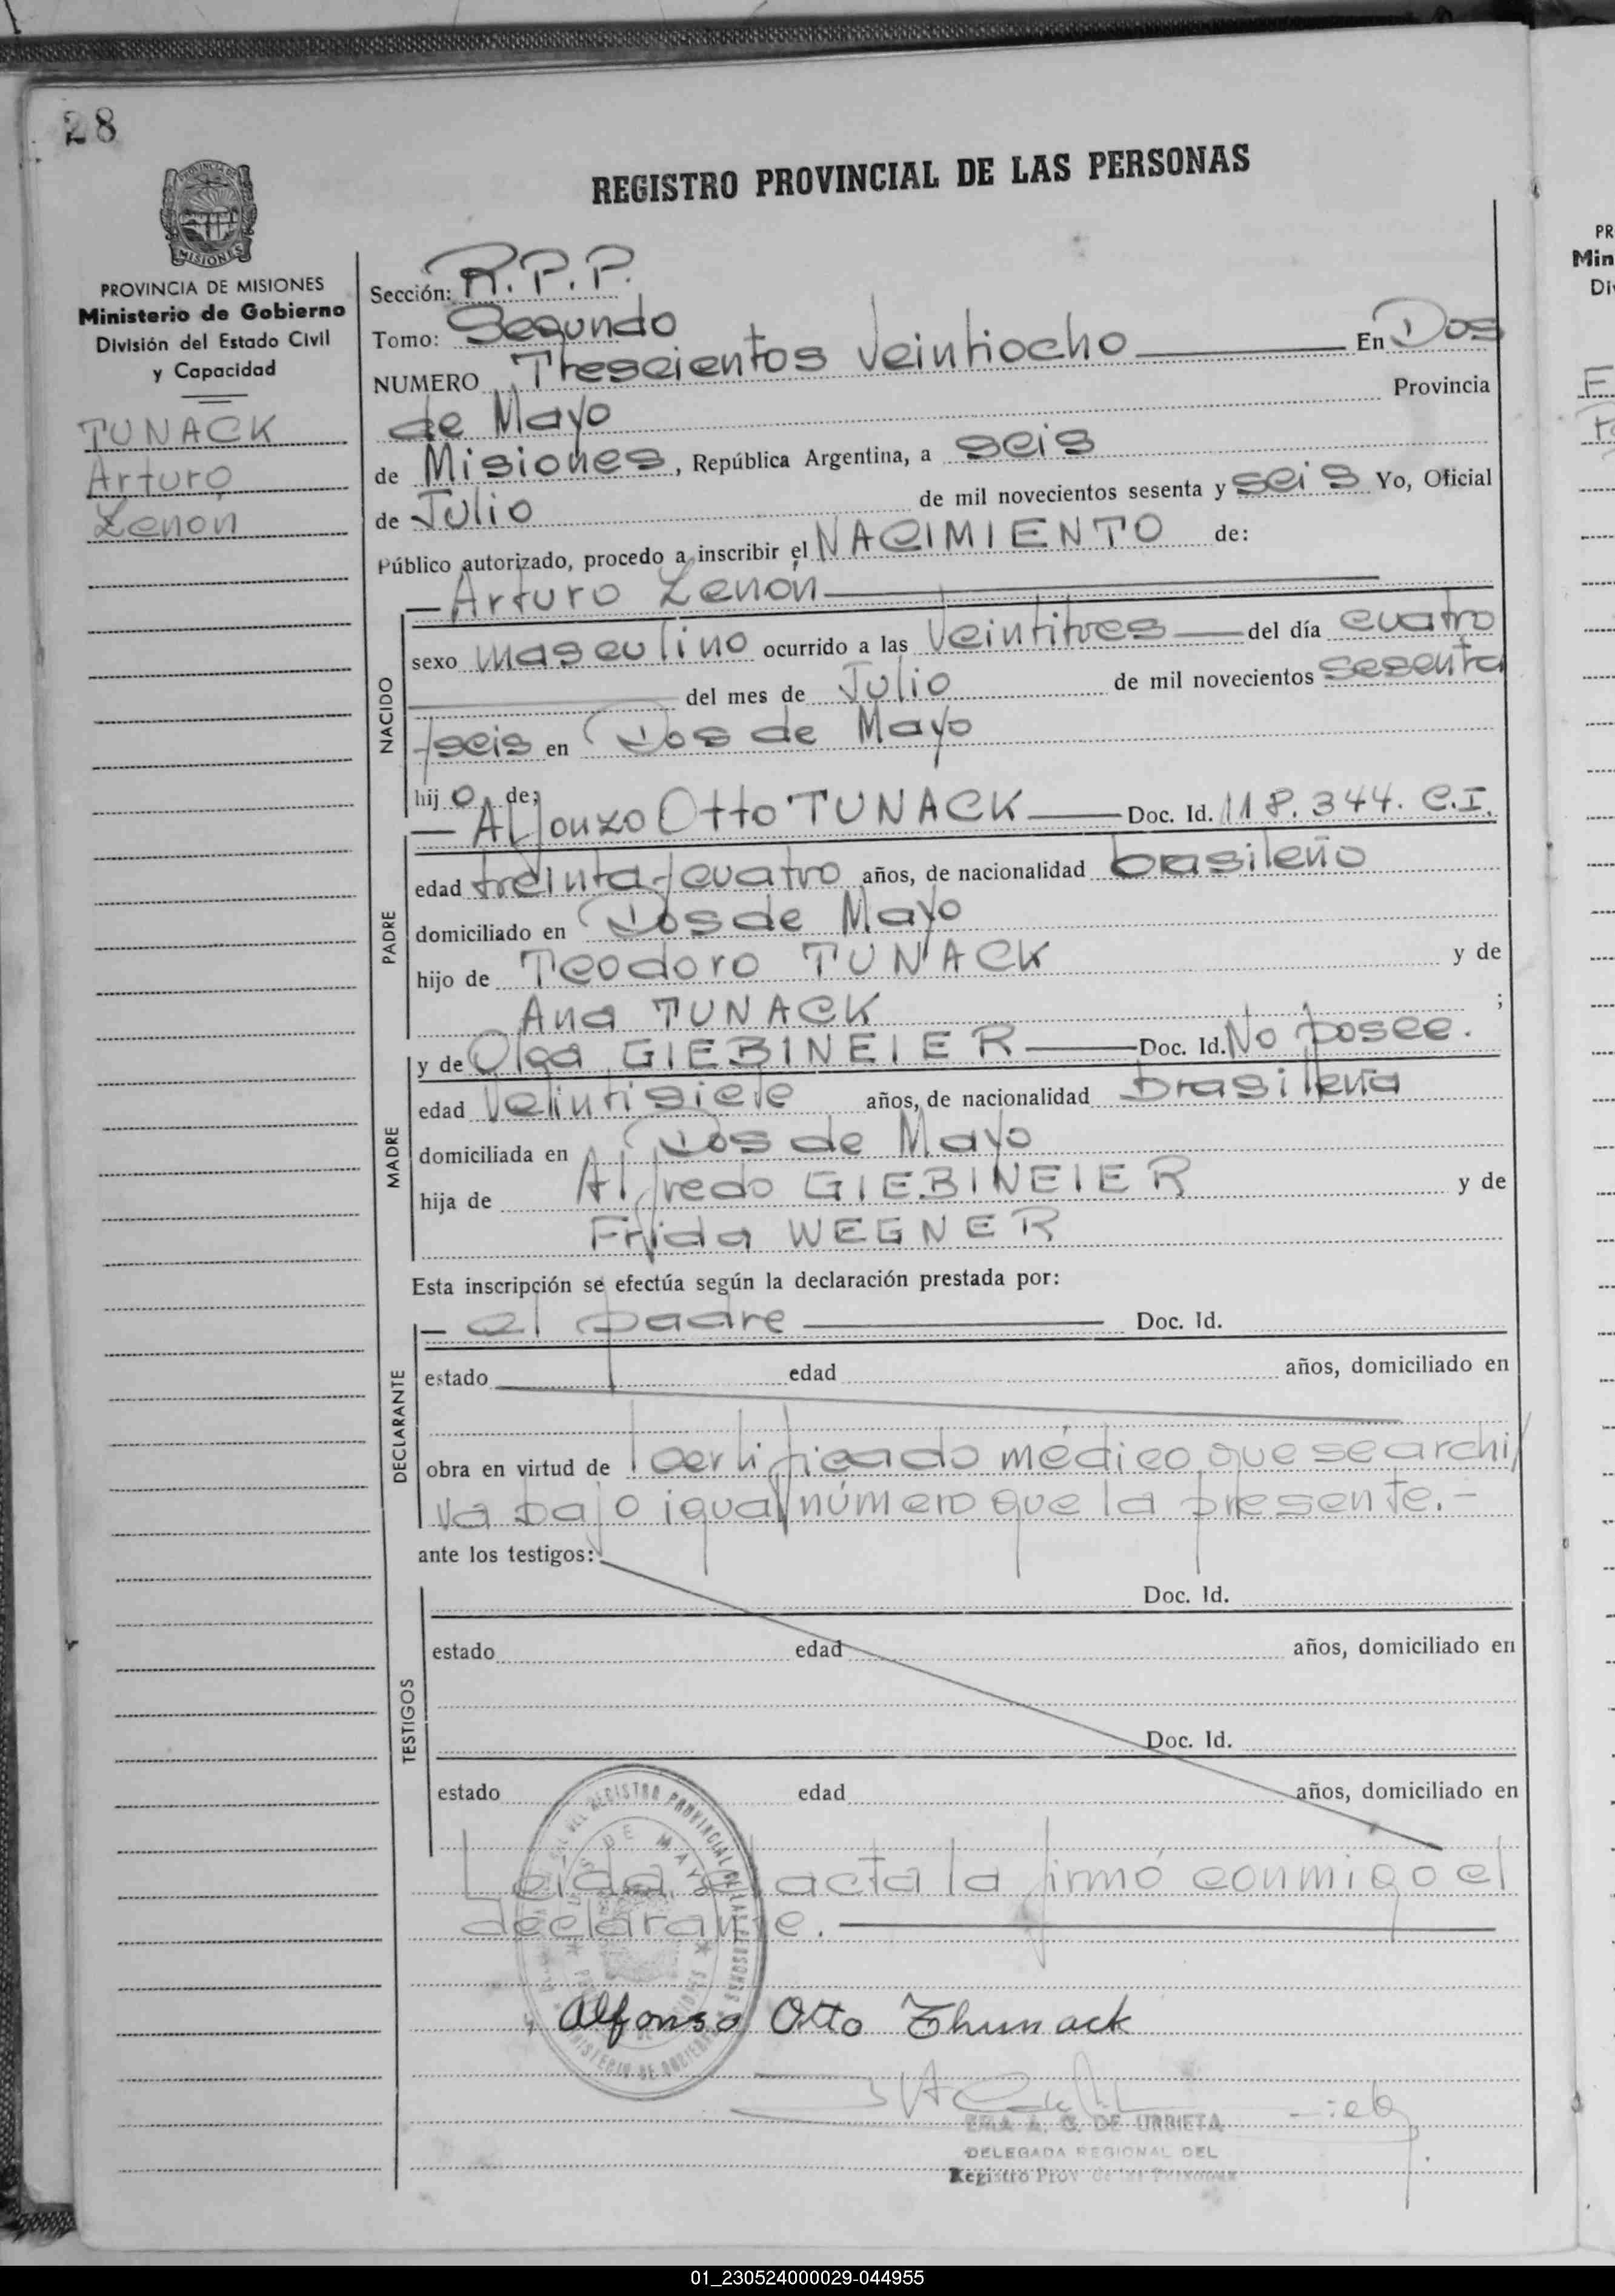 28
REGISTRO PROVINCIAL DE LAS PERSONAS
MISIONES
PROVINCIA DE MISIONES
Ministerio de Gobierno
División del Estado Civil
y Capacidad
TUNACK
Arturo
Zenon
Sección: R.P.P.
Tomo: Segundo
NUMERO Trescientos Veintiocho En Dos
de Mayo Provincia
de Misiones, República Argentina, a seis
de Julio de mil novecientos sesenta y seis Yo, Oficial
Público autorizado, procedo a inscribir el NACIMIENTO de:
Arturo Zenon
NACIDO
sexo masculino ocurrido a las Veintitres del día cuatro
del mes de Julio de mil novecientos sesenta
y seis en Dos de Mayo
hijo de;
Alfonzo Otto TUNACK Doc. Id. 118.344. C.I.
PADRE
edad treinta y cuatro años, de nacionalidad brasileño
domiciliado en Dos de Mayo
hijo de Teodoro TUNACK y de
Ana TUNACK ;
y de Olga GIEBINEIER Doc. Id. No posee.
MADRE
edad Veintisiete años, de nacionalidad brasileña
domiciliada en Dos de Mayo
hija de Alfredo GIEBINEIER y de
Frida WEGNER
Esta inscripción se efectúa según la declaración prestada por:
el padre Doc. Id.
DECLARANTE
estado edad años, domiciliado en
obra en virtud de certificado médico que se archi
va bajo igual número que la presente.-
ante los testigos:
Doc. Id.
TESTIGOS
estado edad años, domiciliado en
Doc. Id.
estado edad años, domiciliado en
Leida el acta la firmó conmigo el
declarante.
DEL REGISTRO PROVINCIAL DE LAS PERSONAS
DOS DE MAYO
MINISTERIO DE GOBIERNO
Alfonso Otto Thunack
A. G. DE URRIETA
DELEGADA REGIONAL DEL
Registro Prov. de las Personas
PR
Min
Di
01_230524000029-044955